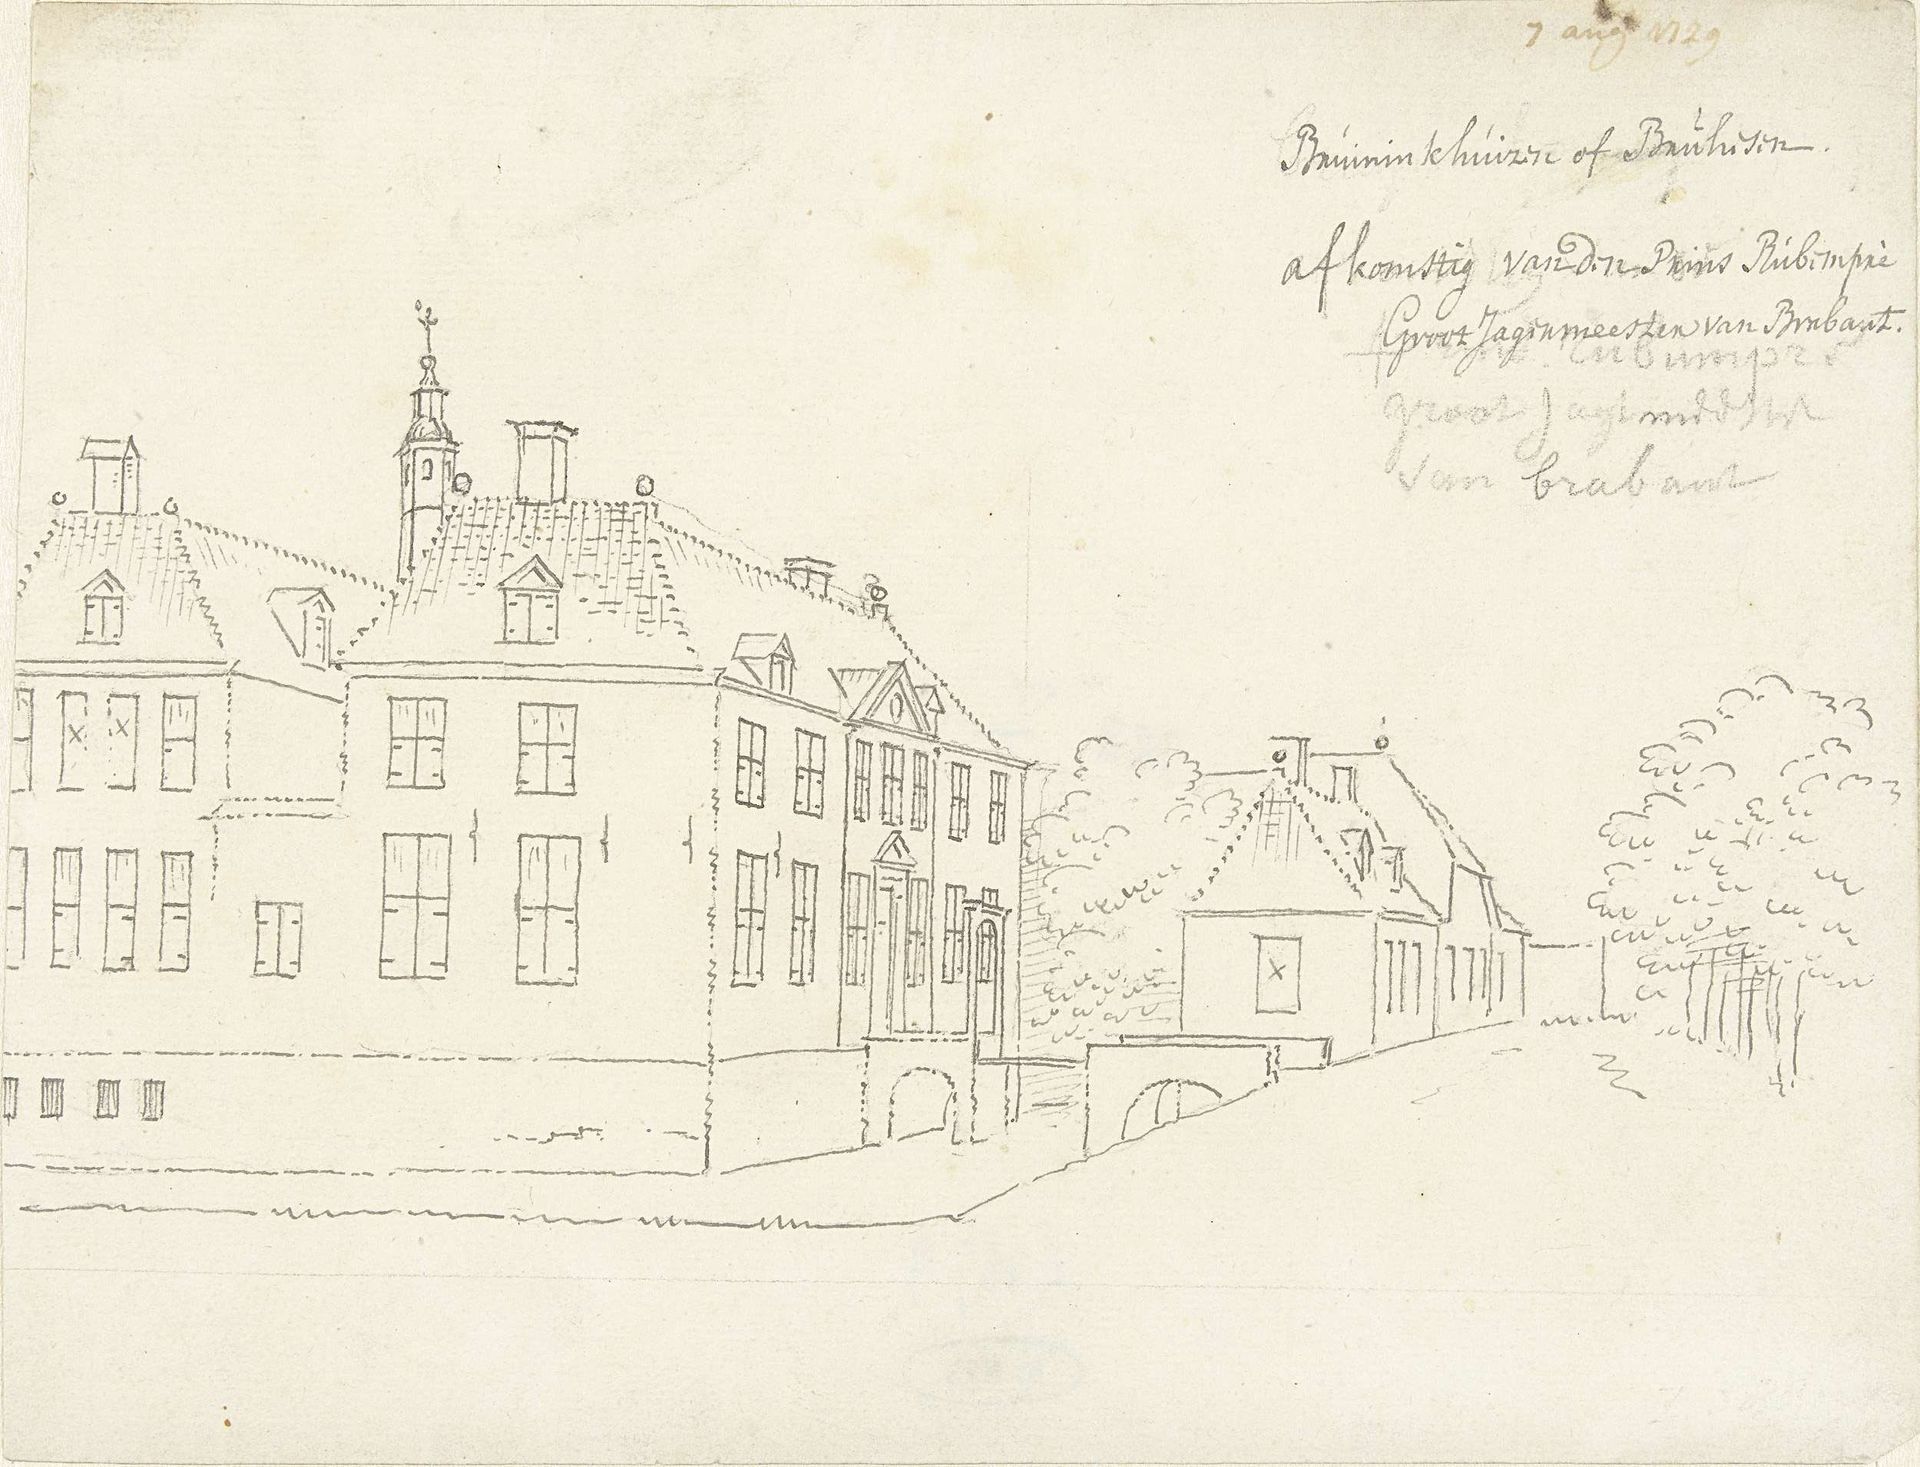 7 aug 1729
Bruininkhuizen of Bruhesen.
afkomstig van den Prins Rubempré
Groot Jagermeester van Brabant.
rubumpré
groot Jagtmeester
van brabant